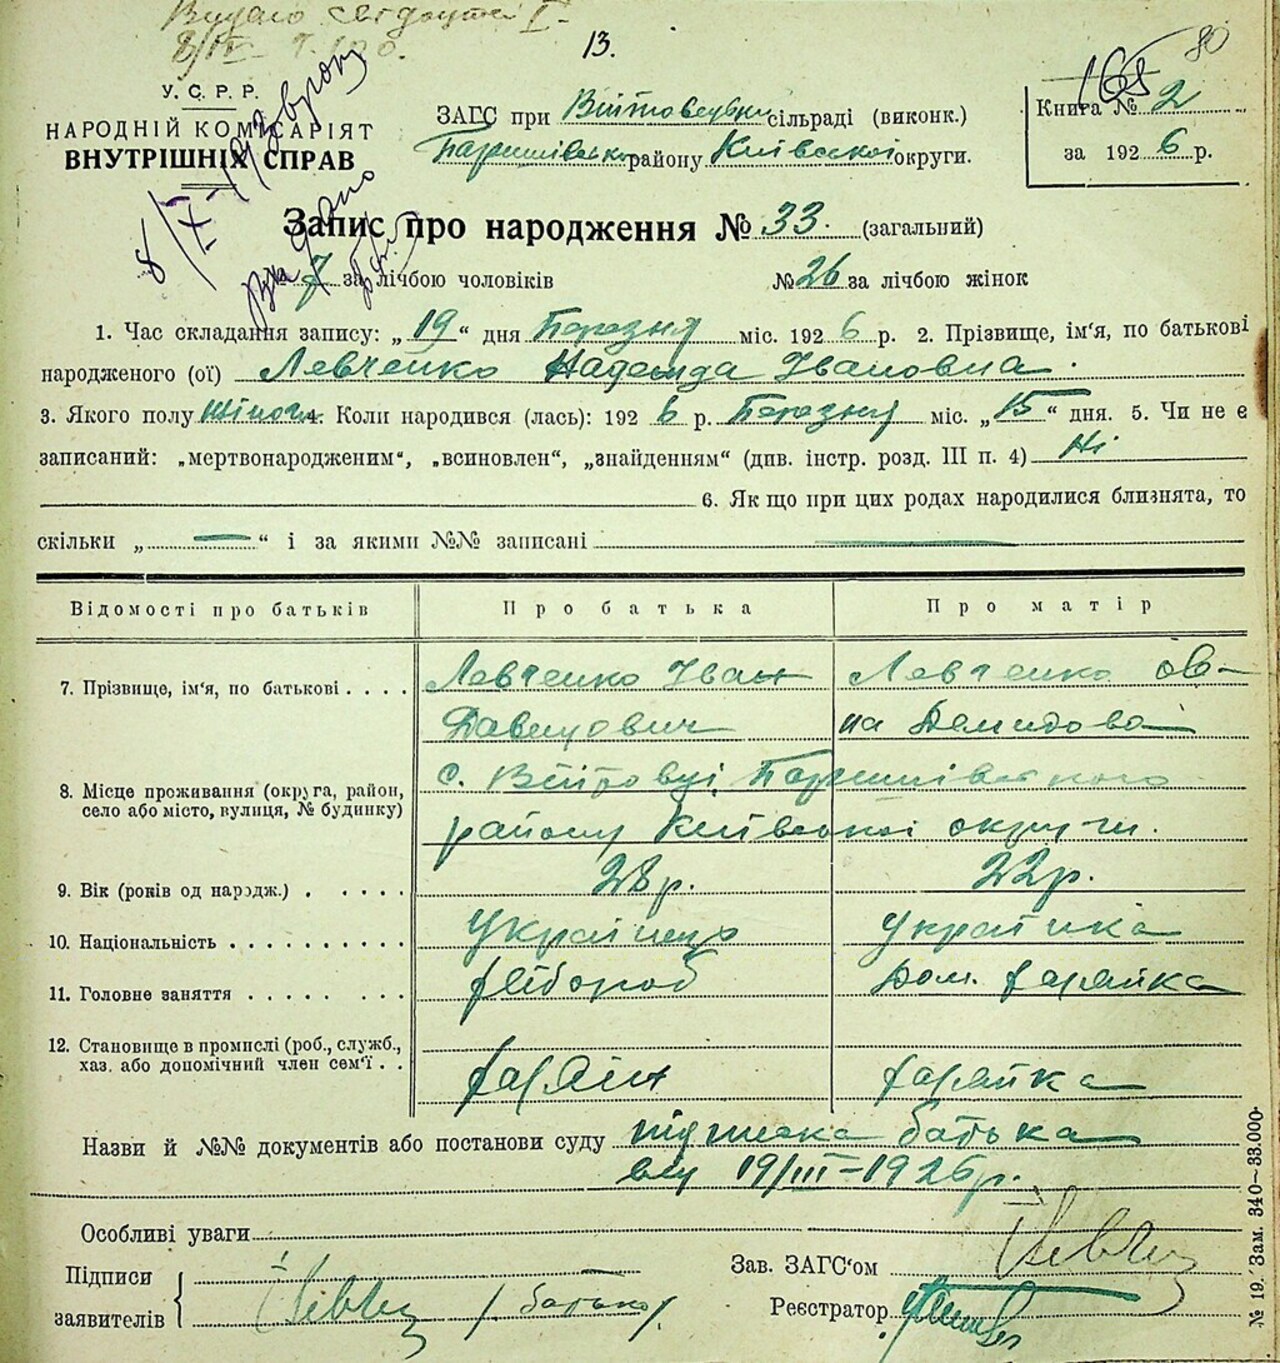 13.
80
165
У. С. Р. Р.
НАРОДНІЙ КОМІСАРІЯТ
ВНУТРІШНІХ СПРАВ
ЗАГС при Війтовецьки сільраді (виконк.)
Баришівсько району Київської округи.
Книга № 2
за 1926 р.
Запис про народження № 33. (загальний)
№ 7 за лічбою чоловіків № 26 за лічбою жінок
1. Час складання запису: „19“ дня Березня міс. 1926 р. 2. Прізвище, ім‘я, по батькові
народженого (ої) Левченко Надежда Івановна.
3. Якого полу жіноч. 4. Коли народився (лась): 1926 р. Березня міс. „15“ дня. 5. Чи не є
записаний: „мертвонародженим“, „всиновлен“, „знайденням“ (див. інстр. розд. III п. 4) Ні
6. Як що при цих родах народилися близнята, то
скільки „—“ і за якими №№ записані —
Відомості про батьків Про батька Про матір
7. Прізвище, ім‘я, по батькові . . . . Левченко Іван Левченко Ов-
Давидович на Демидова
8. Місце проживання (округа, район, село або місто, вулиця, № будинку) с. Війтовці, Баришівського
району Київської округи.
9. Вік (років од народж.) . . . . . 28 р. 22 р.
10. Національність . . . . . . . . . . Українець Українка
11. Головне заняття . . . . . . . . . хлібороб дом. хазяйка
12. Становище в промислі (роб., служб.,
хаз. або допомічний член сем‘ї . . хазяїн хазяйка
Назви й №№ документів або постанови суду підписка батька
від 19/III-1926 р.
Особливі уваги
Підписи
заявителів / батько /
Зав. ЗАГС‘ом
Реєстратор
№ 19. Зам. 340—33.000·